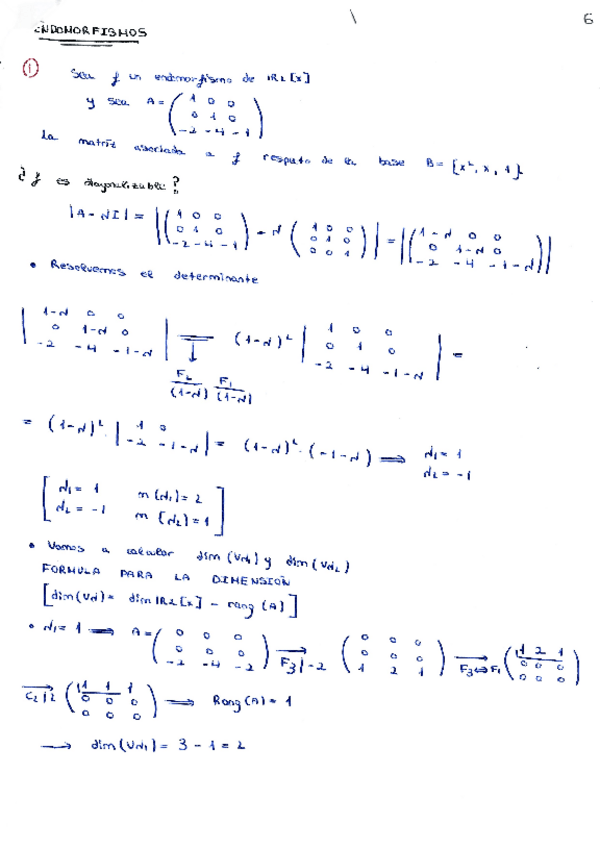 6
ENDOMORFISMOS
① Sea f un endomorfismo de IR2[x]
y sea A = ( 1 0 0
0 1 0
-2 -4 -1 )
La matriz asociada a f respecto de la base B = {x², x, 1}.
¿f es diagonalizable?
|A - λI| = |( 1 0 0 / 0 1 0 / -2 -4 -1 ) - λ ( 1 0 0 / 0 1 0 / 0 0 1 )| = |( 1-λ 0 0 / 0 1-λ 0 / -2 -4 -1-λ )|
• Resolvemos el determinante
| 1-λ 0 0 / 0 1-λ 0 / -2 -4 -1-λ | = (1-λ)² | 1 0 0 / 0 1 0 / -2 -4 -1-λ | =
F2/(1-λ) F1/(1-λ)
= (1-λ)² · | 1 0 / -2 -1-λ | = (1-λ)² · (-1-λ) ⟹ λ1 = 1
λ2 = -1
[ λ1 = 1 m(λ1) = 2
λ2 = -1 m(λ2) = 1 ]
• Vamos a calcular dim(Vλ1) y dim(Vλ2)
FORMULA PARA LA DIMENSIÓN
[dim(Vλ) = dim IR2[x] - rang(A)]
• λ1 = 1 ⟹ A = ( 0 0 0 / 0 0 0 / -2 -4 -2 ) → F3|-2 ( 0 0 0 / 0 0 0 / 1 2 1 ) → F3⇔F1 ( 1 2 1 / 0 0 0 / 0 0 0 )
→ C2|2 ( 1 1 1 / 0 0 0 / 0 0 0 ) ⟹ Rang(A) = 1
⟶ dim(Vλ1) = 3 - 1 = 2